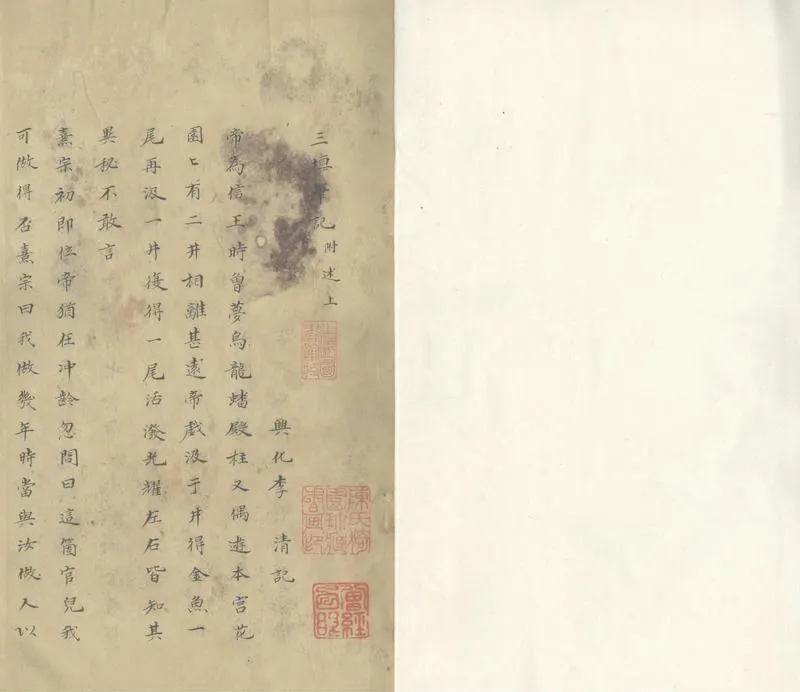 三垣筆記附述上
興化李 清記
帝為信王時曾夢烏龍蟠殿柱又偶遊本宮花
園〻有二井相離甚遠帝戲汲于井得金魚一
尾再汲一井復得一尾活潑光耀左右皆知其
異秘不敢言
熹宗初即位帝猶在冲齡忽問曰這箇官兒我
可做得否熹宗曰我做幾年時當與汝做人以